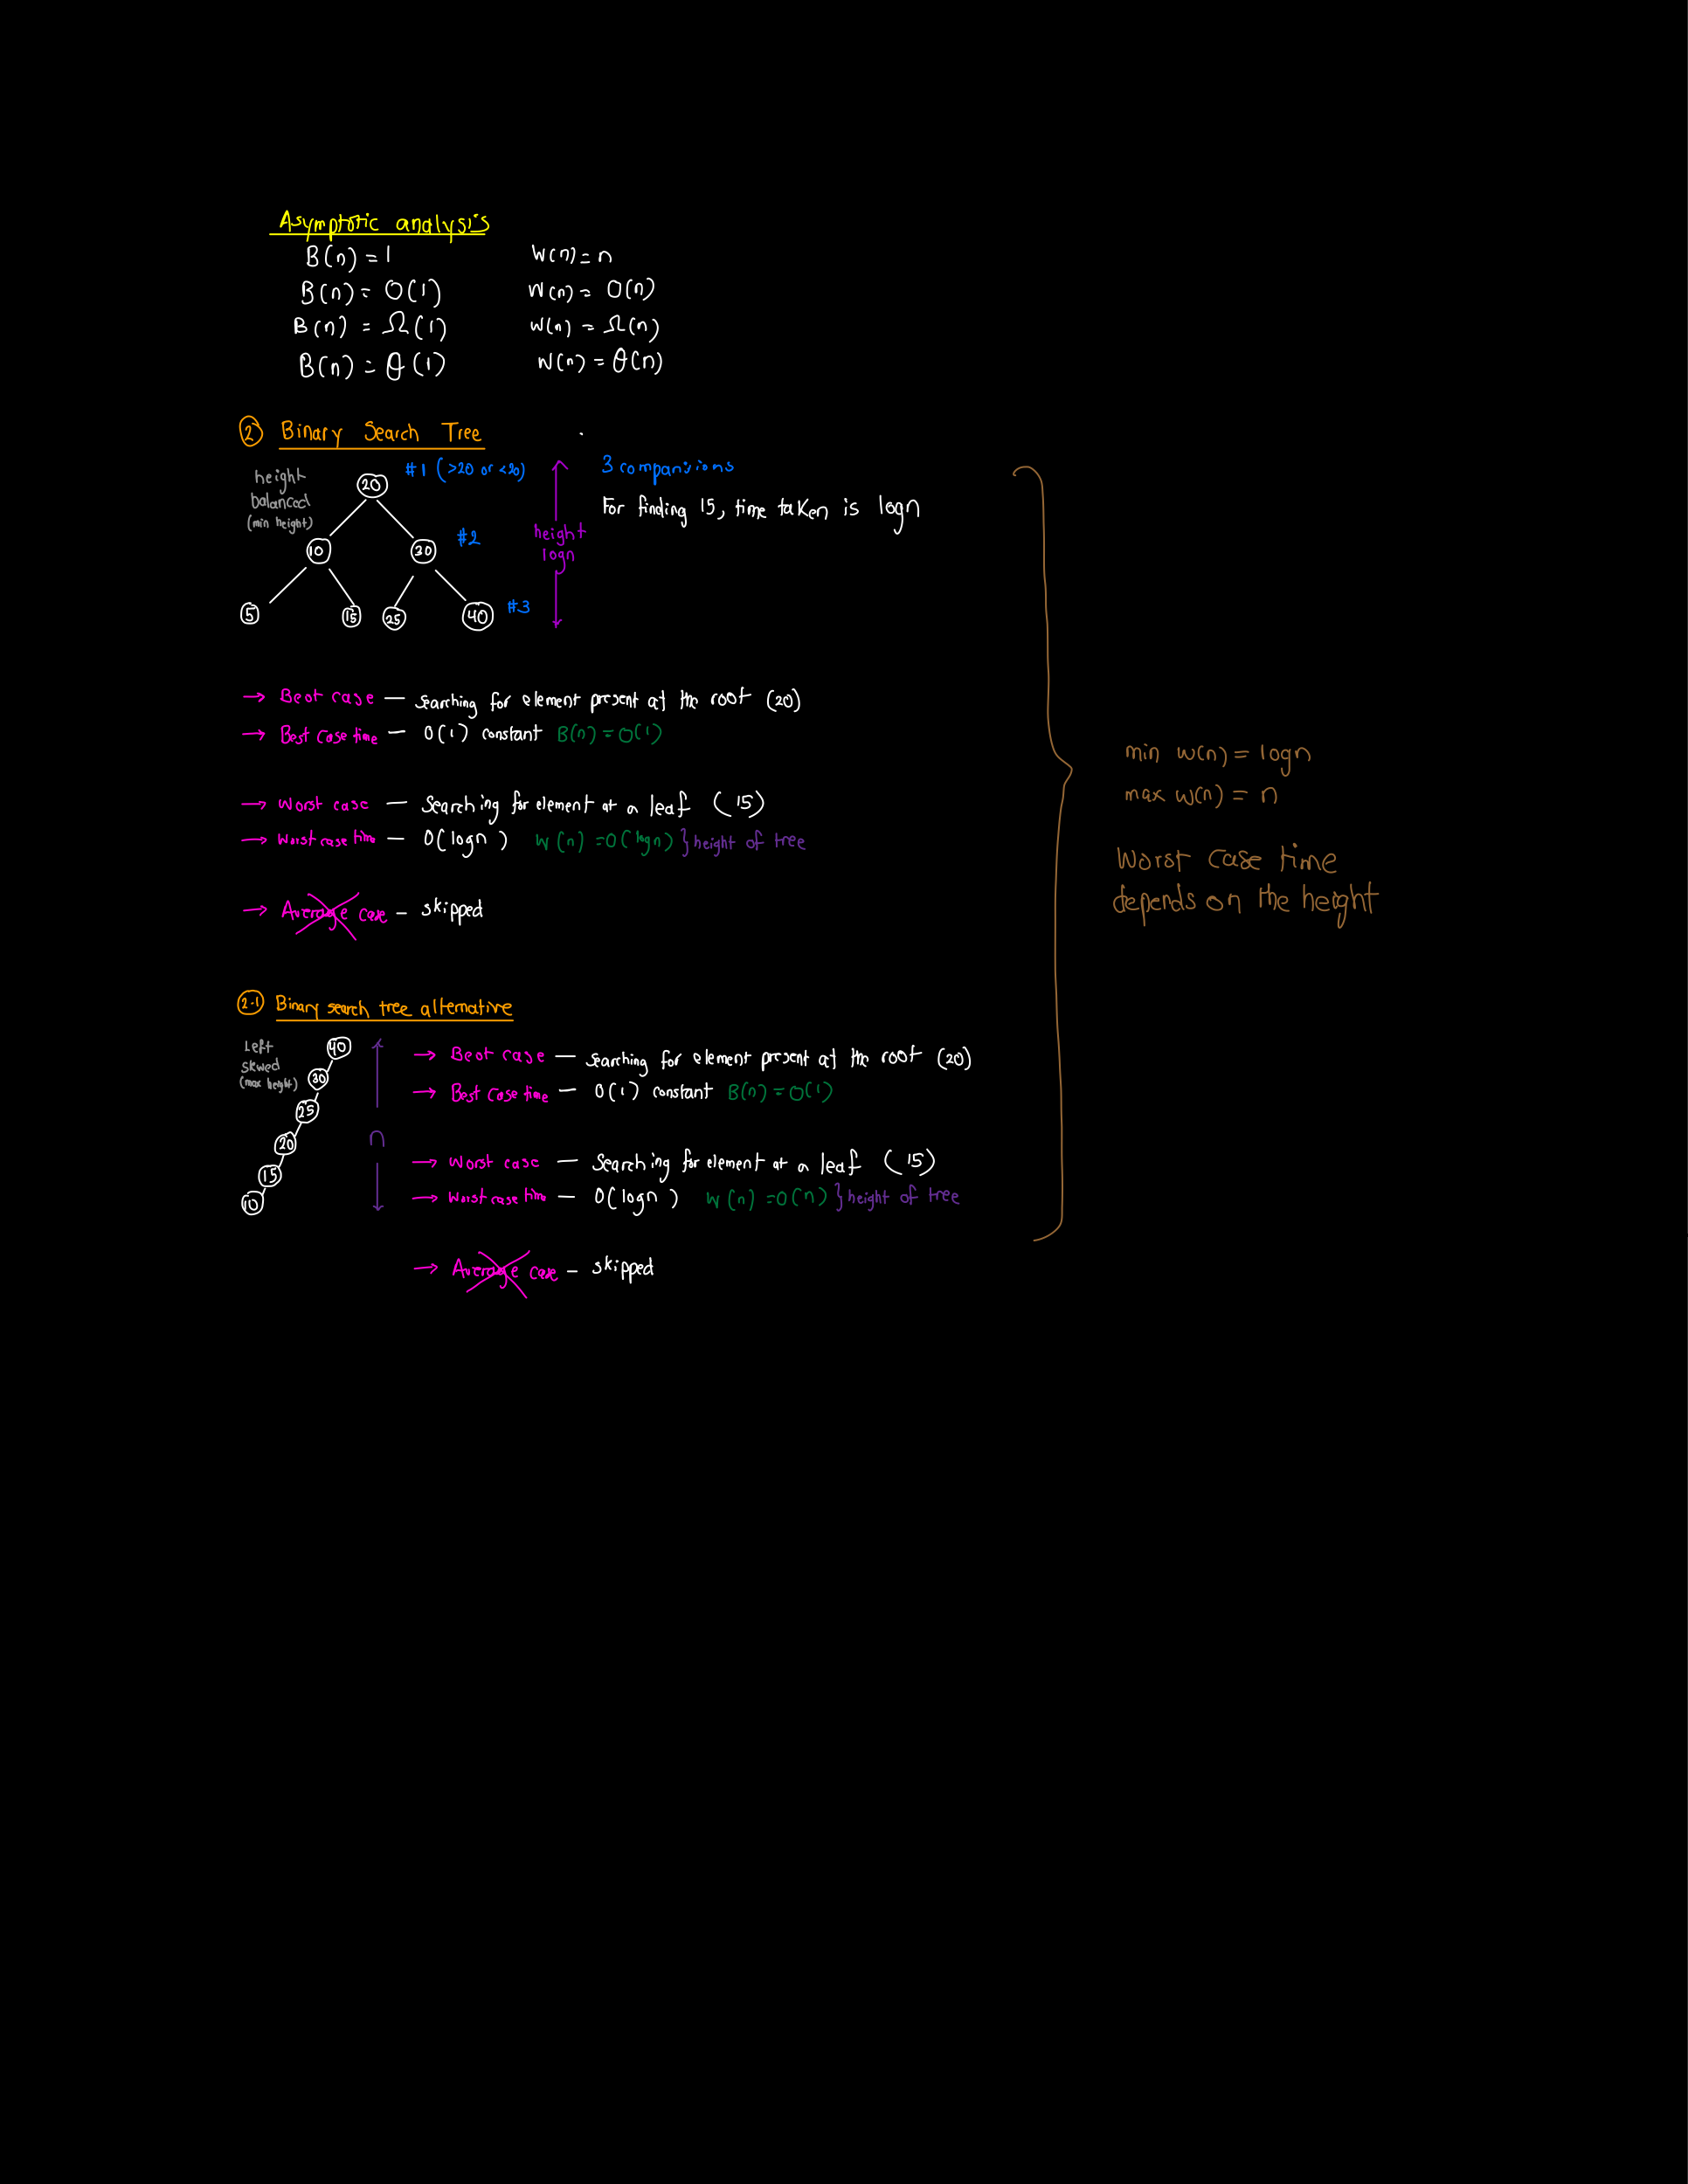 Asymptotic analysis
B(n) = 1 W(n) = n
B(n) = O(1) W(n) = O(n)
B(n) = Ω(1) W(n) = Ω(n)
B(n) = θ(1) W(n) = θ(n)
② Binary Search Tree
height
balanced
(min height)
20 #1 (>20 or <20)
10 30 #2
5 15 25 40 #3
height
logn
3 comparisions
For finding 15, time taken is logn
→ Best case — searching for element present at the root (20)
→ Best case time — O(1) constant B(n) = O(1)
→ Worst case — Searching for element at a leaf (15)
→ Worst case time — O(logn) W(n) = O(logn) } height of tree
→ Average case – skipped
min w(n) = logn
max w(n) = n
Worst case time
depends on the height
2.1 Binary search tree alternative
Left
skwed
(max height)
40
30
25
20
15
10
n
→ Best case — searching for element present at the root (20)
→ Best case time — O(1) constant B(n) = O(1)
→ Worst case — Searching for element at a leaf (15)
→ Worst case time — O(logn) W(n) = O(n) } height of tree
→ Average case – skipped